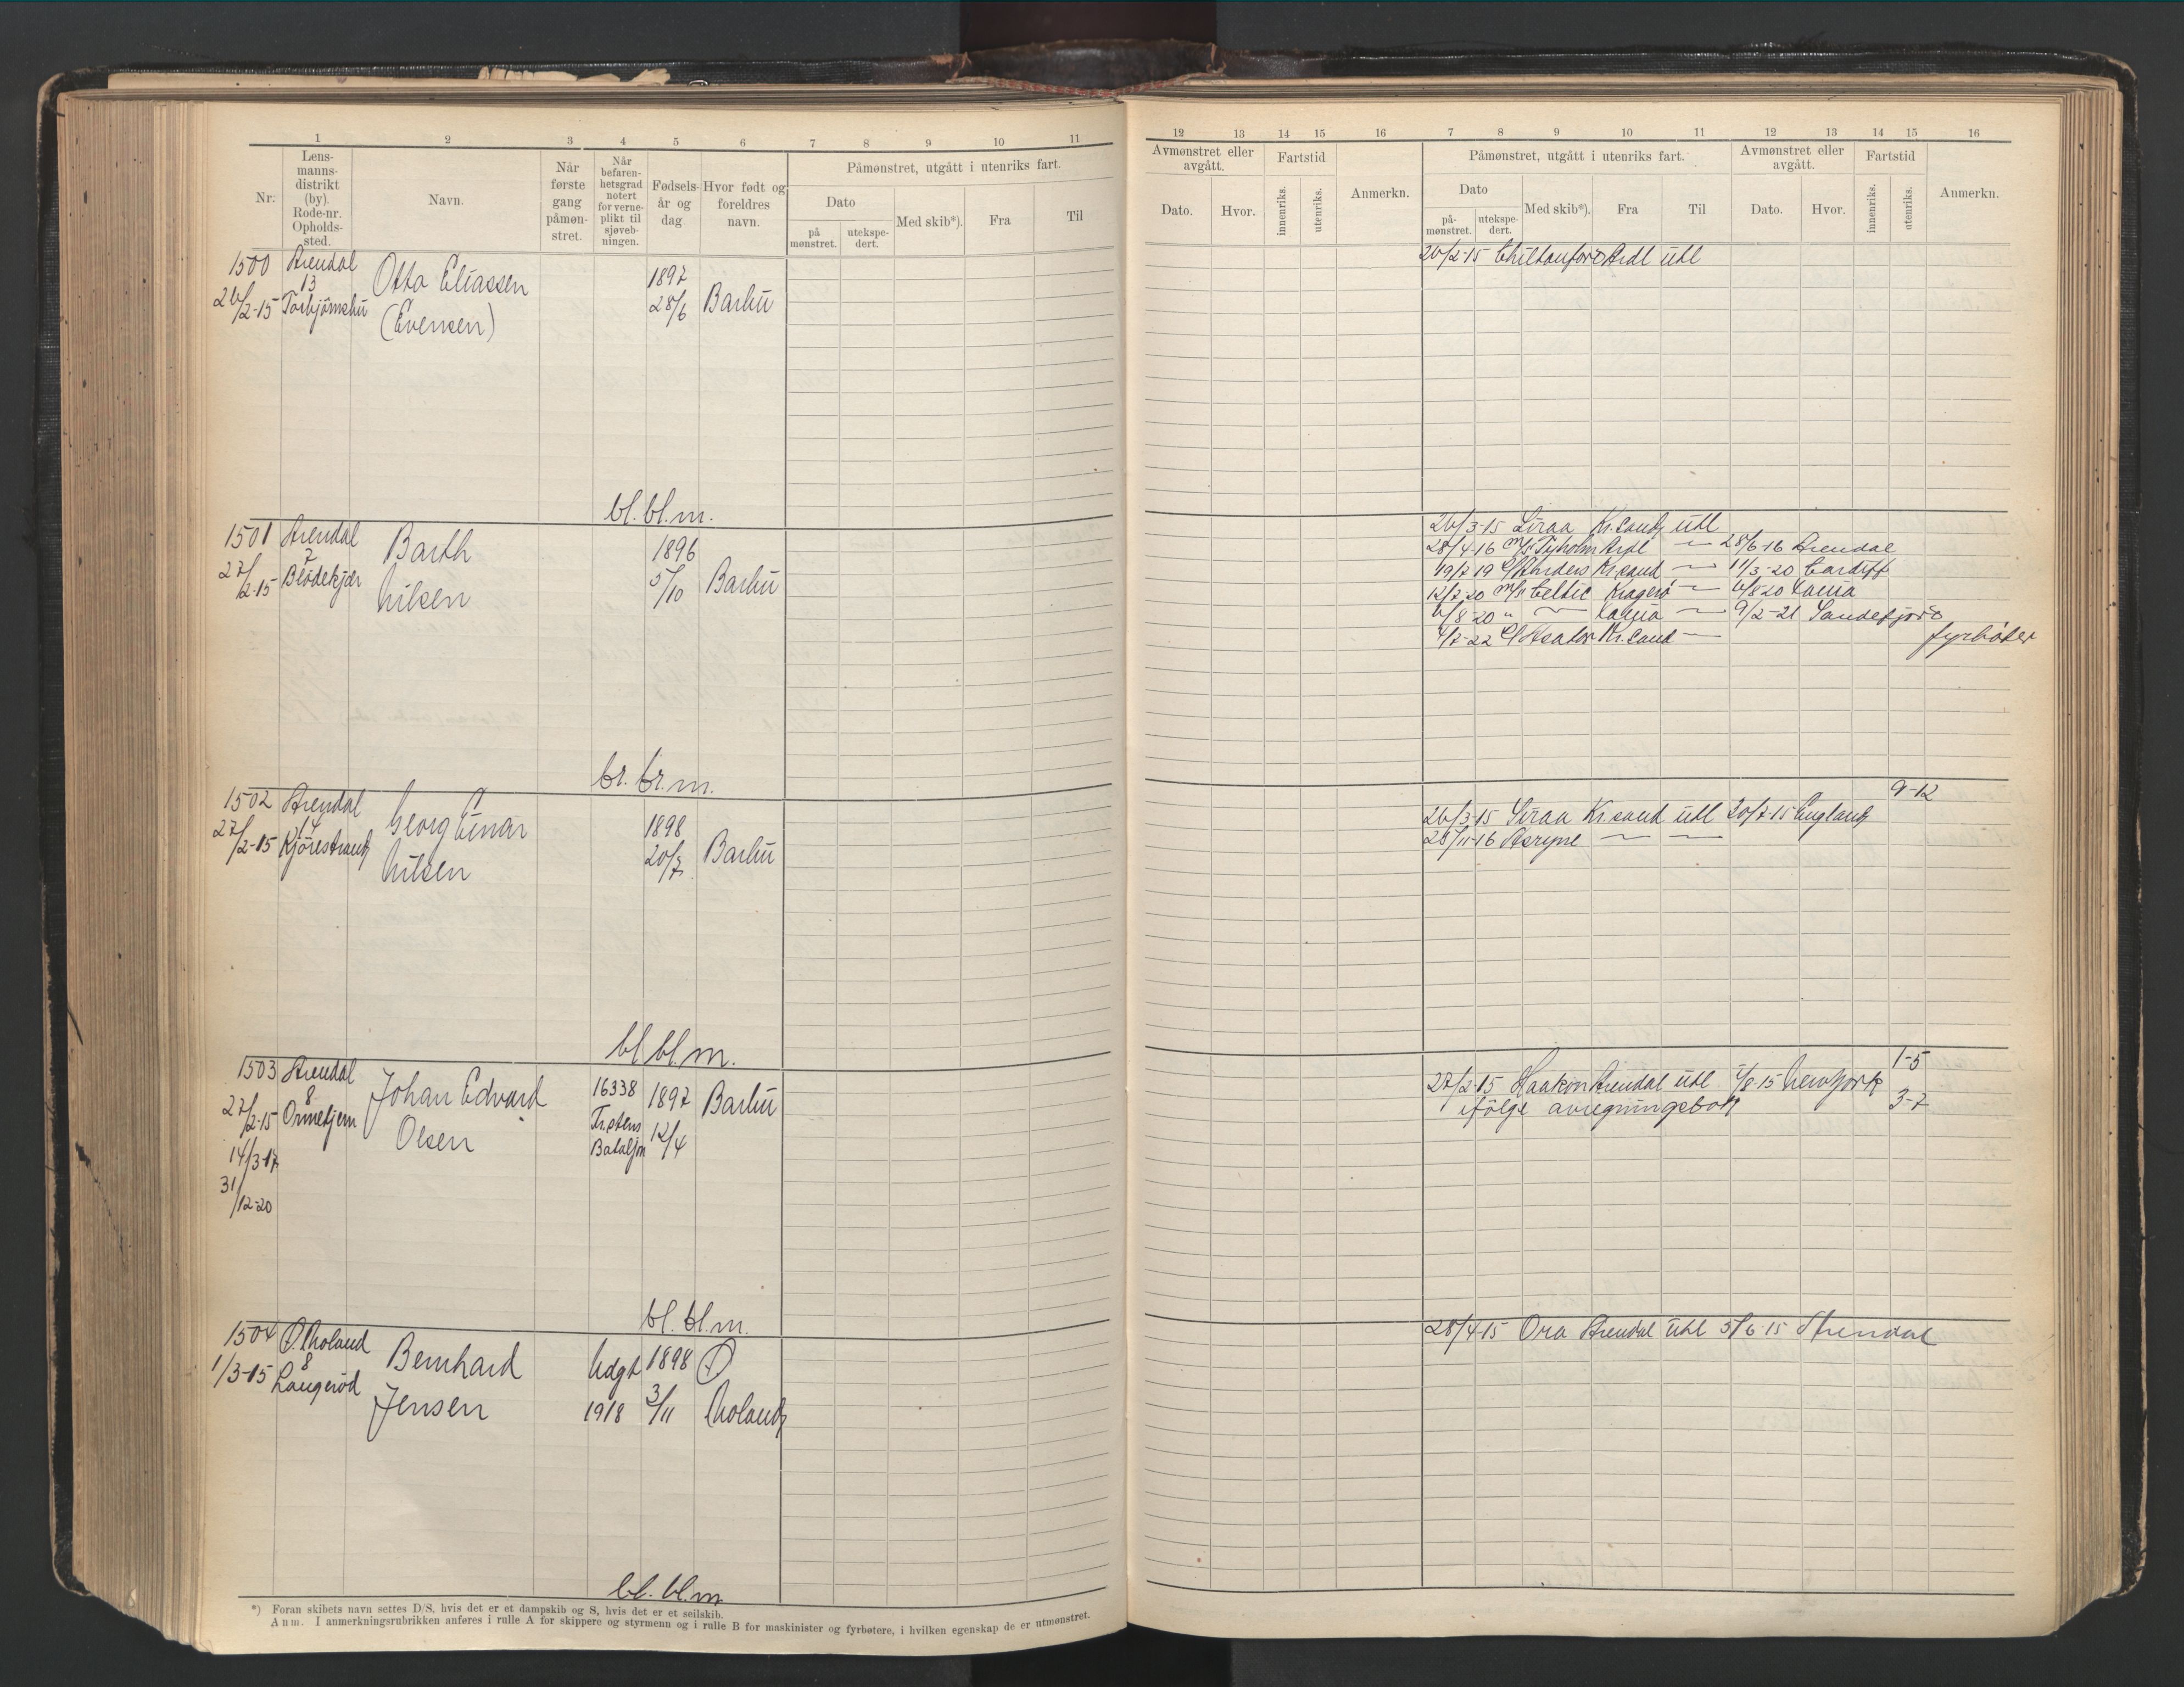 1 2 3 4 5 6 7 8 9 10 11
Nr.
Lens-
manns-
distrikt
(by).
Rode-nr.
Opholds-
sted.
Navn.
Når
første
gang
påmøn-
stret.
Når
befaren-
hetsgrad
notert
for verne-
plikt til
sjøveb-
ningen.
Fødsels-
år og
dag
Hvor født og
foreldres
navn.
Påmønstret, utgått i utenriks fart.
Dato
på
mønstret.
utekspe-
dert.
Med skib*).
Fra
Til
1500 Arendal
13
26/2-15 Torbjørnsbu
Otto Eliassen
(Evensen)
1897
28/6
Barbu
bl. bl. m.
1501 Arendal
7
27/2-15 Blødekjær
Barth
Nilsen
1896
5/10
Barbu
br. br. m.
1502 Arendal
14
27/2-15 Kjørestrand
Georg Einar
Nilsen
1898
20/7
Barbu
bl. bl. m.
1503 Arendal
8
27/2-15 Ormekjern
14/3-17
31/12-20
Johan Edvard
Olsen
16338
Fr.stens
Bataljon
1897
12/4
Barbu
bl. bl. m.
1504 Ø. Moland
8
1/3-15 Langerød
Bernhard
Jensen
Udgt
1918
1898
3/11
Ø
Moland
bl. bl. m
*) Foran skibets navn settes D/S, hvis det er et dampskib og S, hvis det er et seilskib.
Anm. I anmerkningsrubrikken anføres i rulle A for skippere og styrmenn og i rulle B for maskinister og fyrbøtere, i hvilken egenskap de er utmønstret.
12 13 14 15 16 7 8 9 10 11 12 13 14 15 16
Avmønstret eller
avgått.
Dato.
Hvor.
Fartstid
innenriks.
utenriks.
Anmerkn.
Påmønstret, utgått i utenriks fart.
Dato
på-
mønstret.
utekspe-
dert.
Med skib*).
Fra
Til
Avmønstret eller
avgått.
Dato.
Hvor.
Fartstid
innenriks.
utenriks.
Anmerkn.
26/2-15 Chiltonford Ardl utl
26/3-15 Siraa Kr.sand utl
28/4-16 m/s Tyholm Ardl — 28/6-16 Arendal
19/7 19 Kr.sand — 11/3-20 Cardiff
12/7-20 m/s Celtic Kragerø — 6/8-20
6/8-20 " — — 9/2-21 Sandefjord
4/7-22 Kr.sand —
fyrbøter
9-12
26/3-15 Siraa Kr.sand utl 20/7-15 England
28/11-16 — —
1-5
27/2-15 Haakon Arendal utl 7/8-15 New York
ifølge avregningsbok 3-7
28/4-15 Ora Arendal utl 5/6-15 Arendal